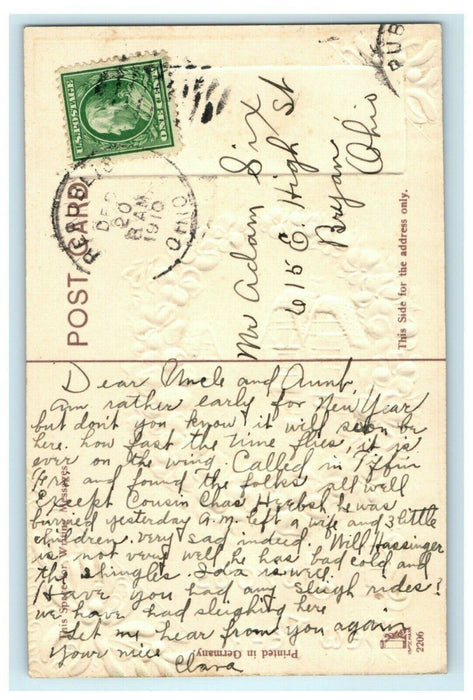 U.S.POSTAGE
ONE CENT
DEC
20
8 AM
1910
OHIO
PUB
POST CARD
Mr Adam Six
615 E. High St
Bryan
Ohio
This Side for the address only.
Dear Uncle and Aunt,
Am rather early for New Year
but don't you know it will soon be
here. how fast the time flies, it is
ever on the wing. Called in
and found the folks all well
Except Cousin Chas he was
burried yesterday a.m. left a wife and 3 little
children. very sad indeed. Will Hassinger
is not very well he has bad cold and
the shingles. Ida is well.
Have you had any sleigh rides?
we have had sleighing here
Let me hear from you again
your niece
Clara
This Space for Writing Messages.
Printed in Germany
2206